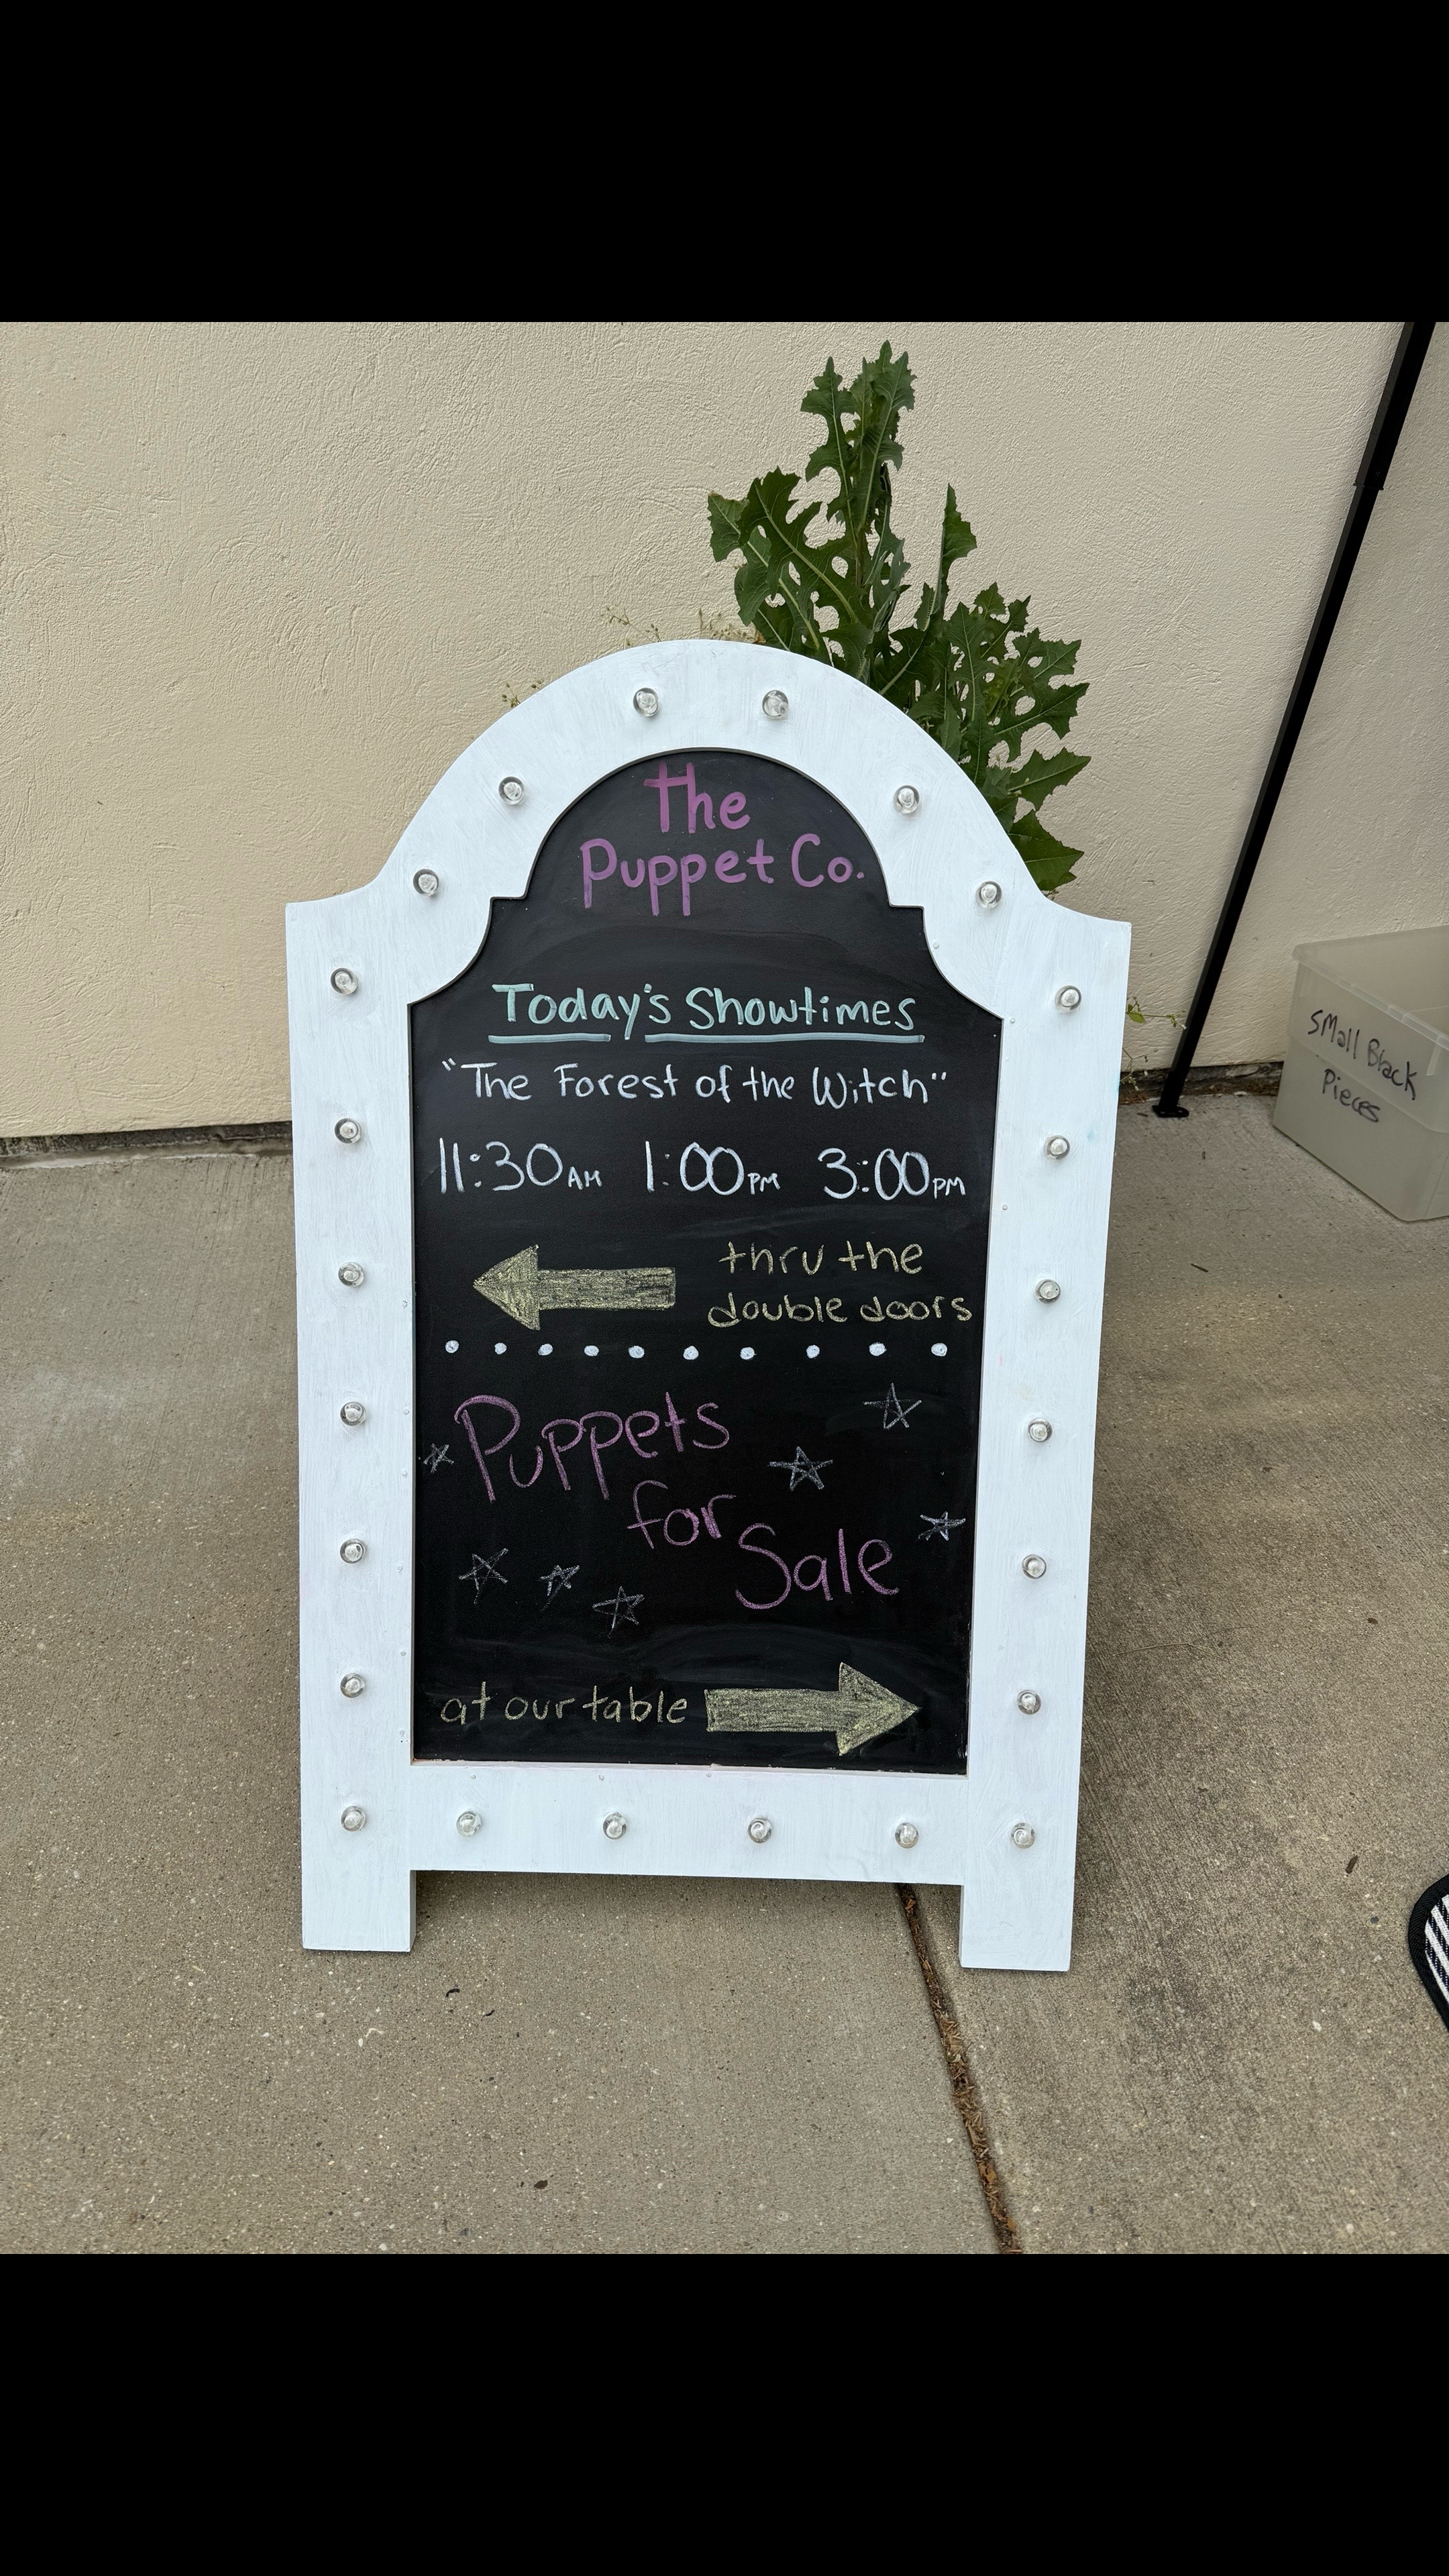 The
Puppet Co.
Today's Showtimes
"The Forest of the Witch"
11:30AM 1:00PM 3:00PM
thru the
double doors
Puppets
for
Sale
at our table
Small Black
Pieces